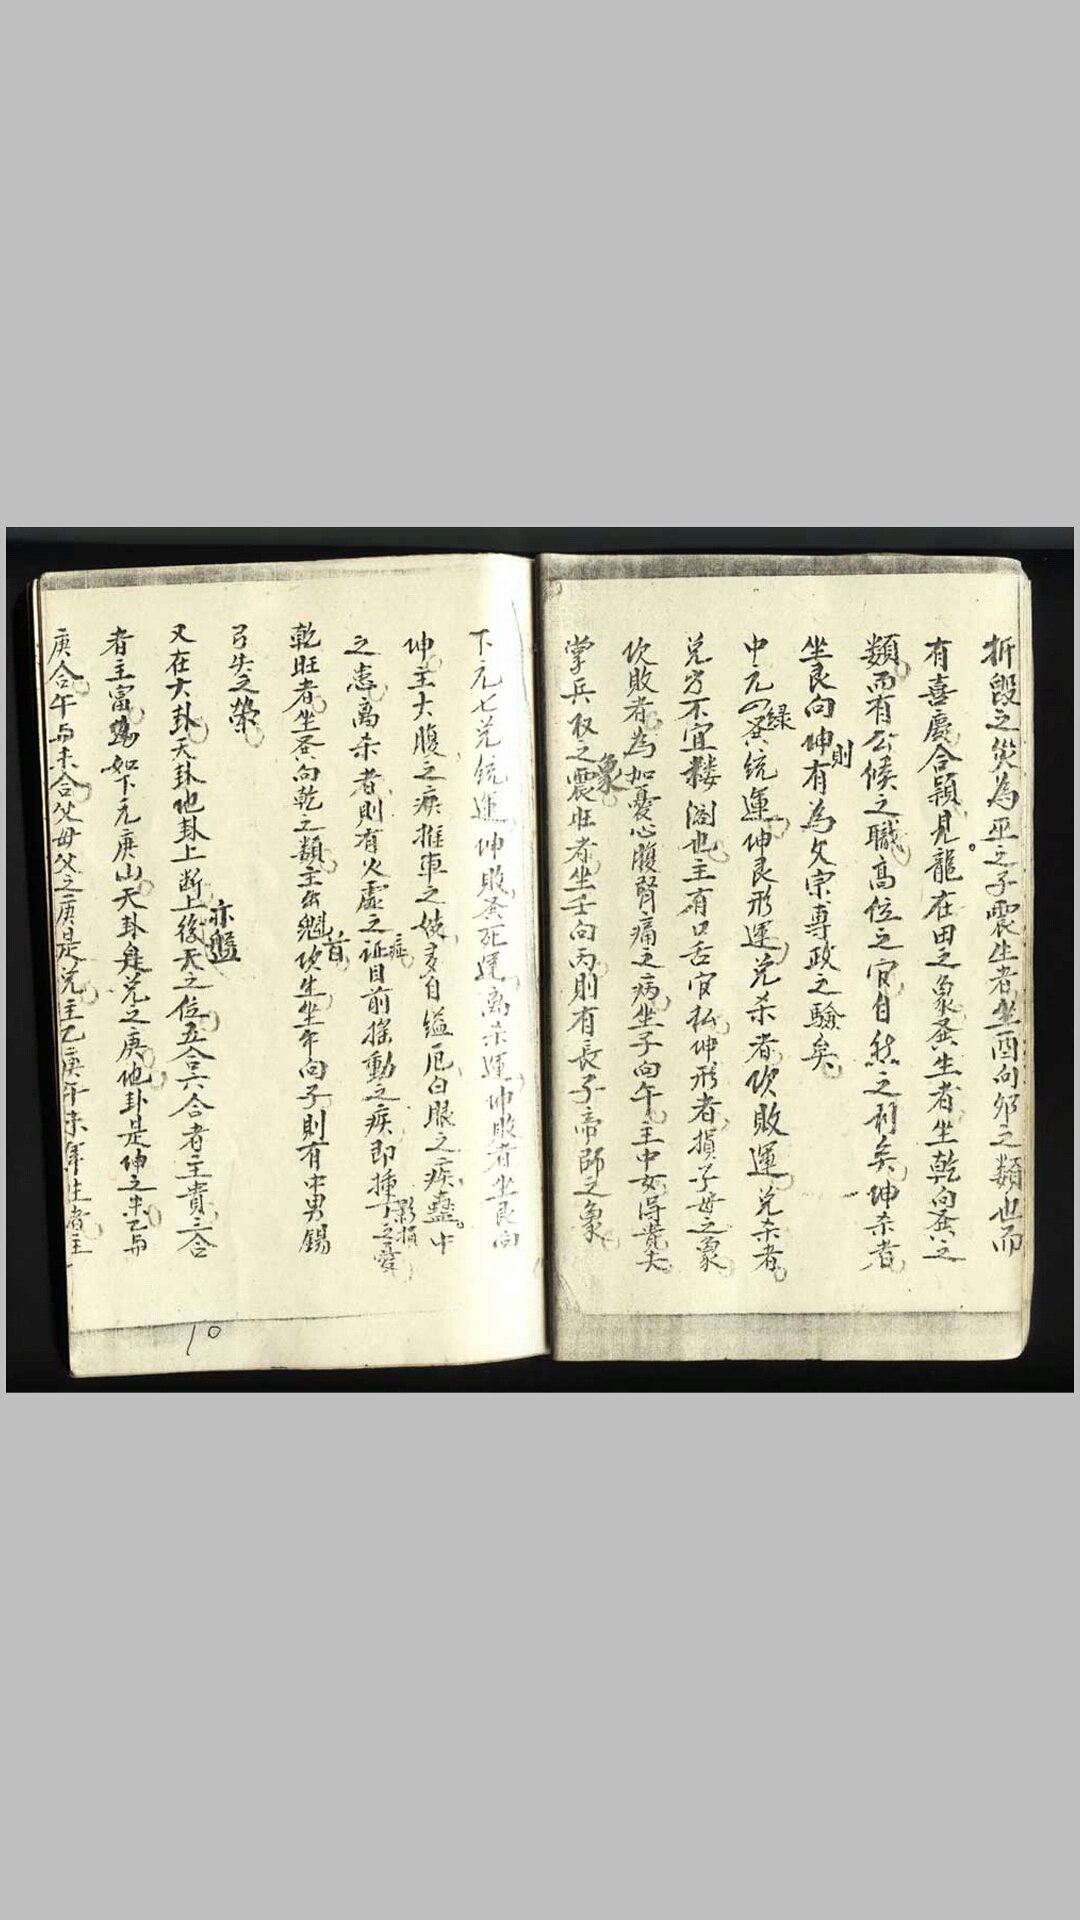 折毁之災為巫之子震生者坐酉向卯之類也而
有喜慶合頴見龍在田之象巽生者坐乾向巽之
類而有公候之職高位之官自然之利矣坤杀者
坐艮向坤有為文宗專政之驗矣
則
中元四巽統運坤艮形運兑杀者坎敗運兑杀者
緑
兑方不宜楼閣也主有口舌官私坤形者損子母之象
坎敗者為加憂心腹腎痛之病坐子向午主中女得貴夫
掌兵权之震旺者坐壬向丙則有長子帝師之象
象
下元七兑統運坤敗巽死運离杀運坤敗者坐艮向
坤主大腹之疾推車之妓多自縊厄白眼之疾蠱中
之患离杀者則有火虚之証目前搖動之疾即
症
影損
乾旺者坐巽向乾之類主魁坎生坐午向子則有中男錫
首
弓矢之榮
又在大卦天卦地卦上断上後天之位五合六合者主貴三合
亦盤
者主富如下元庚山天卦是兑之庚他卦是坤之未乙与
庚合午与未合父母父之庚是兑主乙庚午未年生者主
10